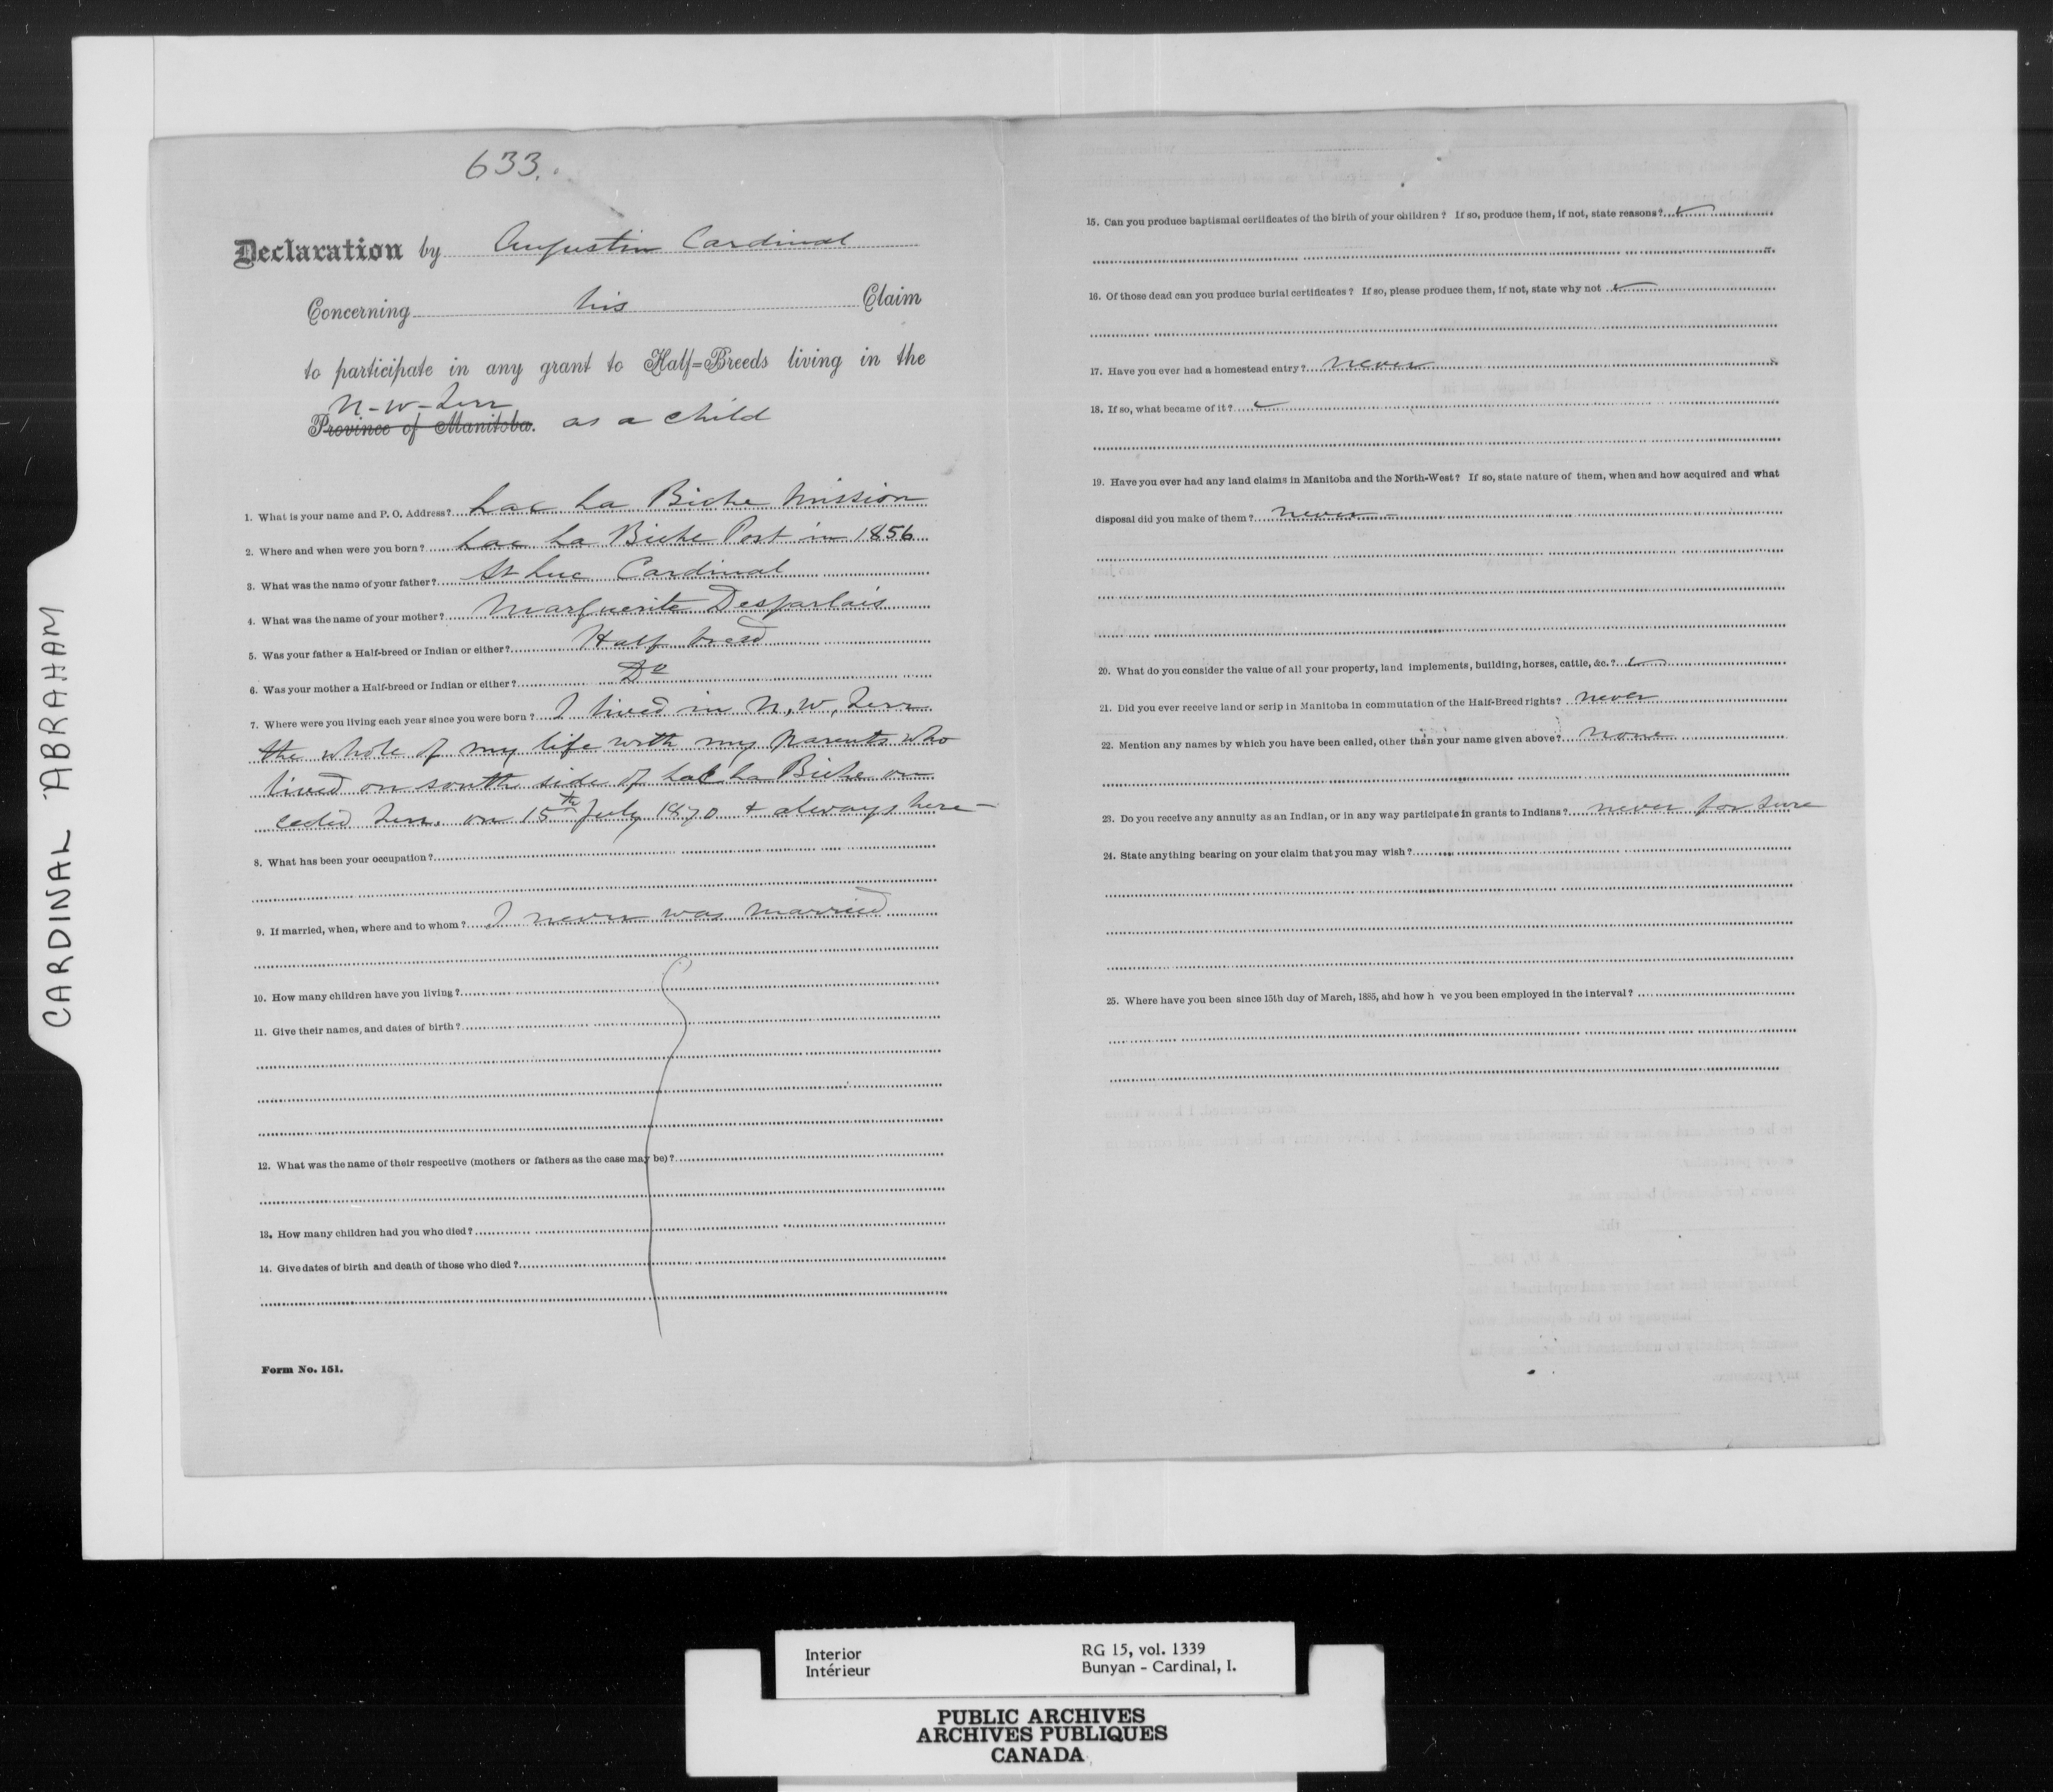 633.
Declaration by Augustin Cardinal
Concerning his Claim
to participate in any grant to Half=Breeds living in the
N-W-Terr
Province of Manitoba. as a child
1. What is your name and P. O. Address? Lac La Biche Mission
2. Where and when were you born? Lac La Biche Post in 1856
3. What was the name of your father? St Luc Cardinal
4. What was the name of your mother? Marguerite Desjarlais
5. Was your father a Half-breed or Indian or either? Half breed
6. Was your mother a Half-breed or Indian or either? Do
7. Where were you living each year since you were born? I lived in N.W. Terr
the whole of my life with my parents who
lived on south side of Lac La Biche on
ceded Terr. on 15th July 1870 + always here -
8. What has been your occupation?
9. If married, when, where and to whom? I never was married
10. How many children have you living?
11. Give their names, and dates of birth?
12. What was the name of their respective (mothers or fathers as the case may be)?
13. How many children had you who died?
14. Give dates of birth and death of those who died?
Form No. 151.
15. Can you produce baptismal certificates of the birth of your children? If so, produce them, if not, state reasons?
16. Of those dead can you produce burial certificates? If so, please produce them, if not, state why not
17. Have you ever had a homestead entry? never
18. If so, what became of it?
19. Have you ever had any land claims in Manitoba and the North-West? If so, state nature of them, when and how acquired and what
disposal did you make of them? never -
20. What do you consider the value of all your property, land implements, building, horses, cattle, &c.?
21. Did you ever receive land or scrip in Manitoba in commutation of the Half-Breed rights? never
22. Mention any names by which you have been called, other than your name given above? none
23. Do you receive any annuity as an Indian, or in any way participate in grants to Indians? never for sure
24. State anything bearing on your claim that you may wish?
25. Where have you been since 15th day of March, 1885, and how h ve you been employed in the interval?
CARDINAL ABRAHAM
Interior RG 15, vol. 1339
Intérieur Bunyan - Cardinal, I.
PUBLIC ARCHIVES
ARCHIVES PUBLIQUES
CANADA